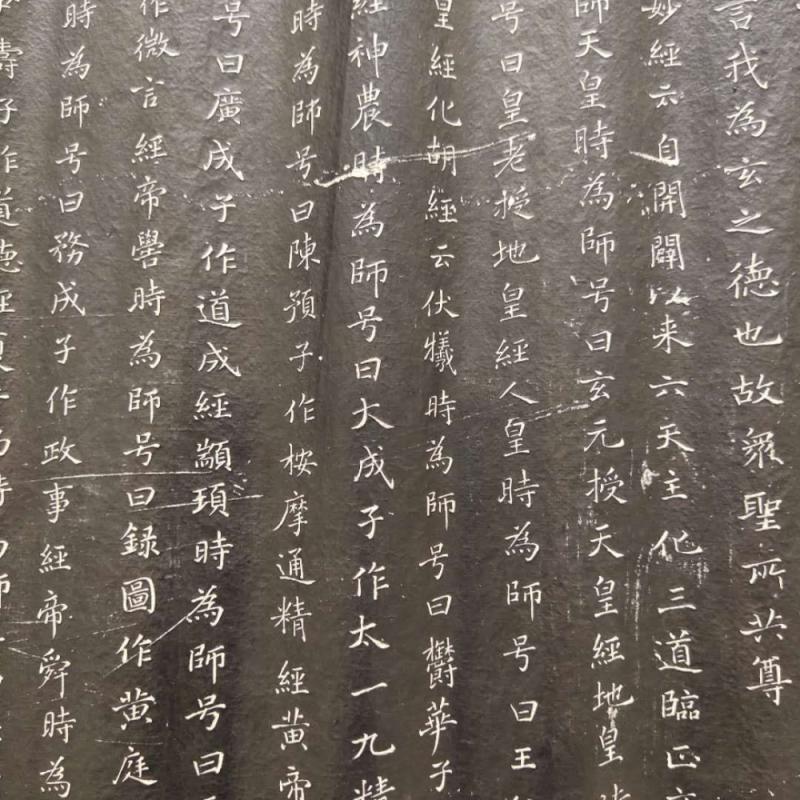 言我為玄之德也故眾聖所共尊
妙經云自開闢以来六天主化三道臨正
師天皇時為師号曰玄元授天皇經地皇時
号曰皇老授地皇經人皇時為師号曰王
皇經化胡經云伏犧時為師号曰欝華子
經神農時為師号曰大成子作太一九精
時為師号曰陳預子作桉摩通精經黄帝
号曰廣成子作道成經顓頊時為師号曰
作微言經帝嚳時為師号曰録圖作黄庭
時為師号曰務成子作政事經帝舜時為
壽子作道德經